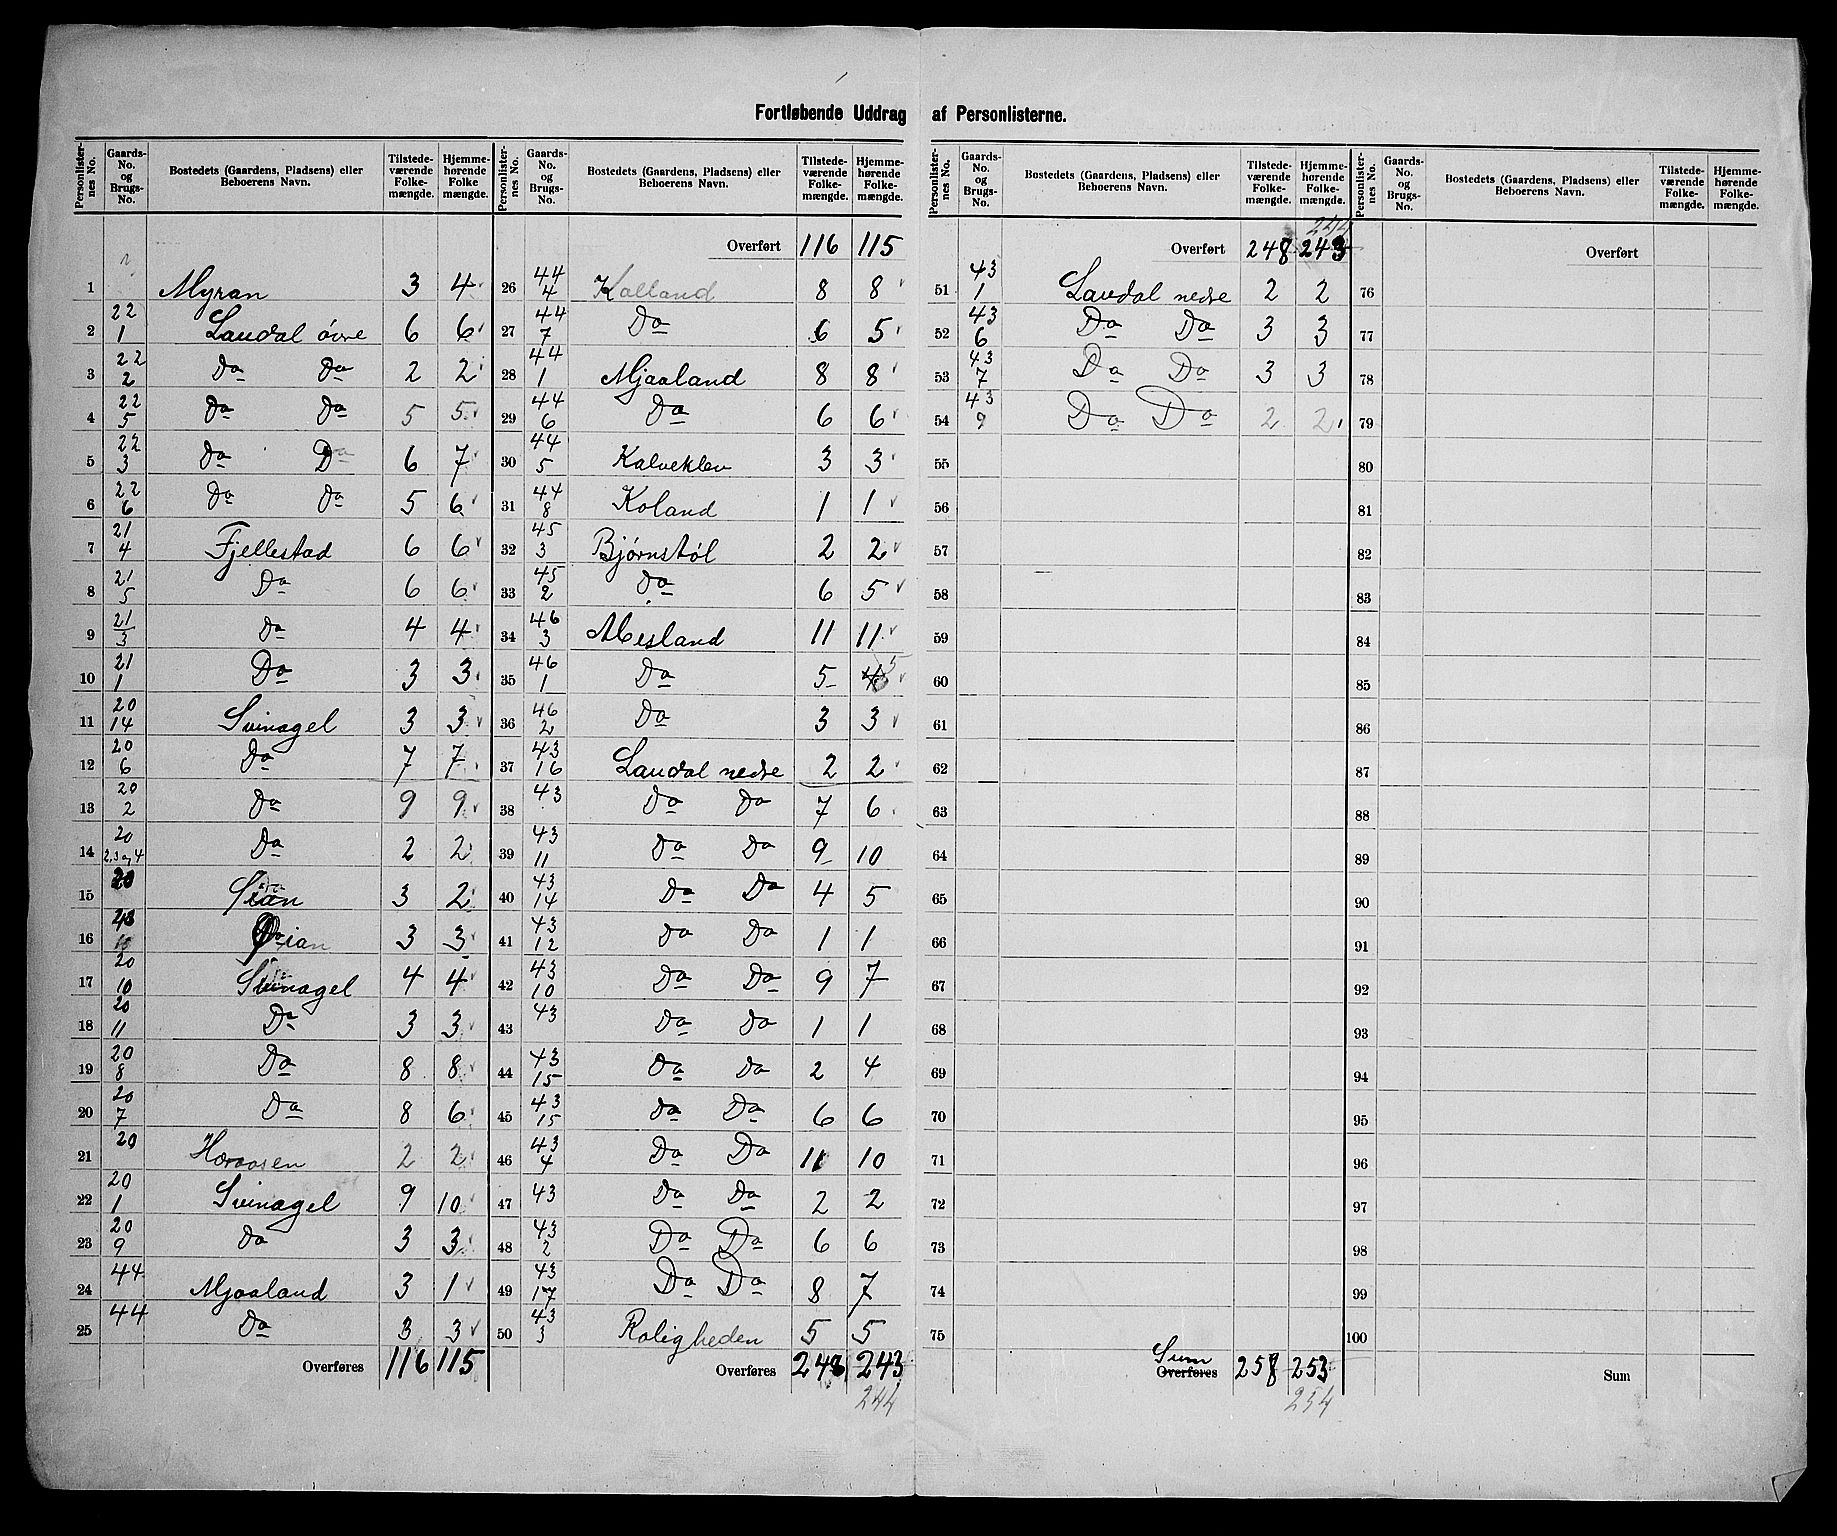 Fortløbende Uddrag af Personlisterne.
Personlisternes No. | Gaards-No. og Brugs-No. | Bostedets (Gaardens, Pladsens) eller Beboerens Navn. | Tilstedeværende Folkemængde. | Hjemmehørende Folkemængde.
1 Myran 3 4
2 22/1 Laudal övre 6 6
3 22/2 Do Do 2 2
4 22/5 Do Do 5 5
5 22/3 Do Do 6 7
6 22/6 Do Do 5 6
7 21/4 Fjellestad 6 6
8 21/5 Do 6 6
9 21/3 Do 4 4
10 21/1 Do 3 3
11 20/14 Svinagel 3 3
12 20/6 Do 7 7
13 20/2 Do 9 9
14 20/2,3 og 4 Do 2 2
15 20 3 2
16 3 3
17 20/10 Svinagel 4 4
18 20/11 Do 3 3
19 20/8 Do 8 8
20 20/7 Do 8 6
21 20 Høraasen 2 2
22 20/1 Svinagel 9 10
23 20/9 Do 3 3
24 44 Mjaaland 3 1
25 44 Do 3 3
Overføres 116 115
Personlisternes No. | Gaards-No. og Brugs-No. | Bostedets (Gaardens, Pladsens) eller Beboerens Navn. | Tilstedeværende Folkemængde. | Hjemmehørende Folkemængde.
Overført 116 115
26 44/4 Kalland 8 8
27 44/7 Do 6 5
28 44/1 Mjaaland 8 8
29 44/6 Do 6 6
30 44/5 Kalveklev 3 3
31 44/8 Koland 1 1
32 45/3 Bjørnstøl 2 2
33 45/2 Do 6 5
34 46/3 Mesland 11 11
35 46/1 Do 5 4 5
36 46/2 Do 3 3
37 43/16 Laudal nedre 2 2
38 43 Do Do 7 6
39 43/11 Do Do 9 10
40 43/14 Do Do 4 5
41 43/12 Do Do 1 1
42 43/10 Do Do 9 7
43 43 Do Do 1 1
44 43/15 Do Do 2 4
45 43/15 Do Do 6 6
46 43/4 Do Do 11 10
47 43 Do Do 2 2
48 43/2 Do Do 6 6
49 43/17 Do Do 8 7
50 43/3 Roligheden 5 5
Overføres 248 243
244
Personlisternes No. | Gaards-No. og Brugs-No. | Bostedets (Gaardens, Pladsens) eller Beboerens Navn. | Tilstedeværende Folkemængde. | Hjemmehørende Folkemængde.
244
Overført 248 243
51 43/1 Laudal nedre 2 2
52 43/6 Do Do 3 3
53 43/7 Do Do 3 3
54 43/9 Do Do 2 2
55
56
57
58
59
60
61
62
63
64
65
66
67
68
69
70
71
72
73
74
75
Sum
Overføres 258 253
254
Personlisternes No. | Gaards-No. og Brugs-No. | Bostedets (Gaardens, Pladsens) eller Beboerens Navn. | Tilstedeværende Folkemængde. | Hjemmehørende Folkemængde.
Overført
76
77
78
79
80
81
82
83
84
85
86
87
88
89
90
91
92
93
94
95
96
97
98
99
100
Sum